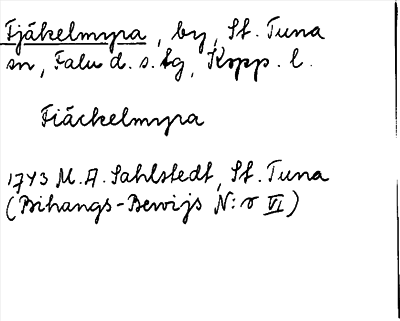 Fjäkelmyra, by, St. Tuna
sn, Falu d. s. tg, Kopp. l.
Fiäckelmyra
1743 M. A. Sahlstedt, St. Tuna
(Bihangs-Bewijs N:o VI)